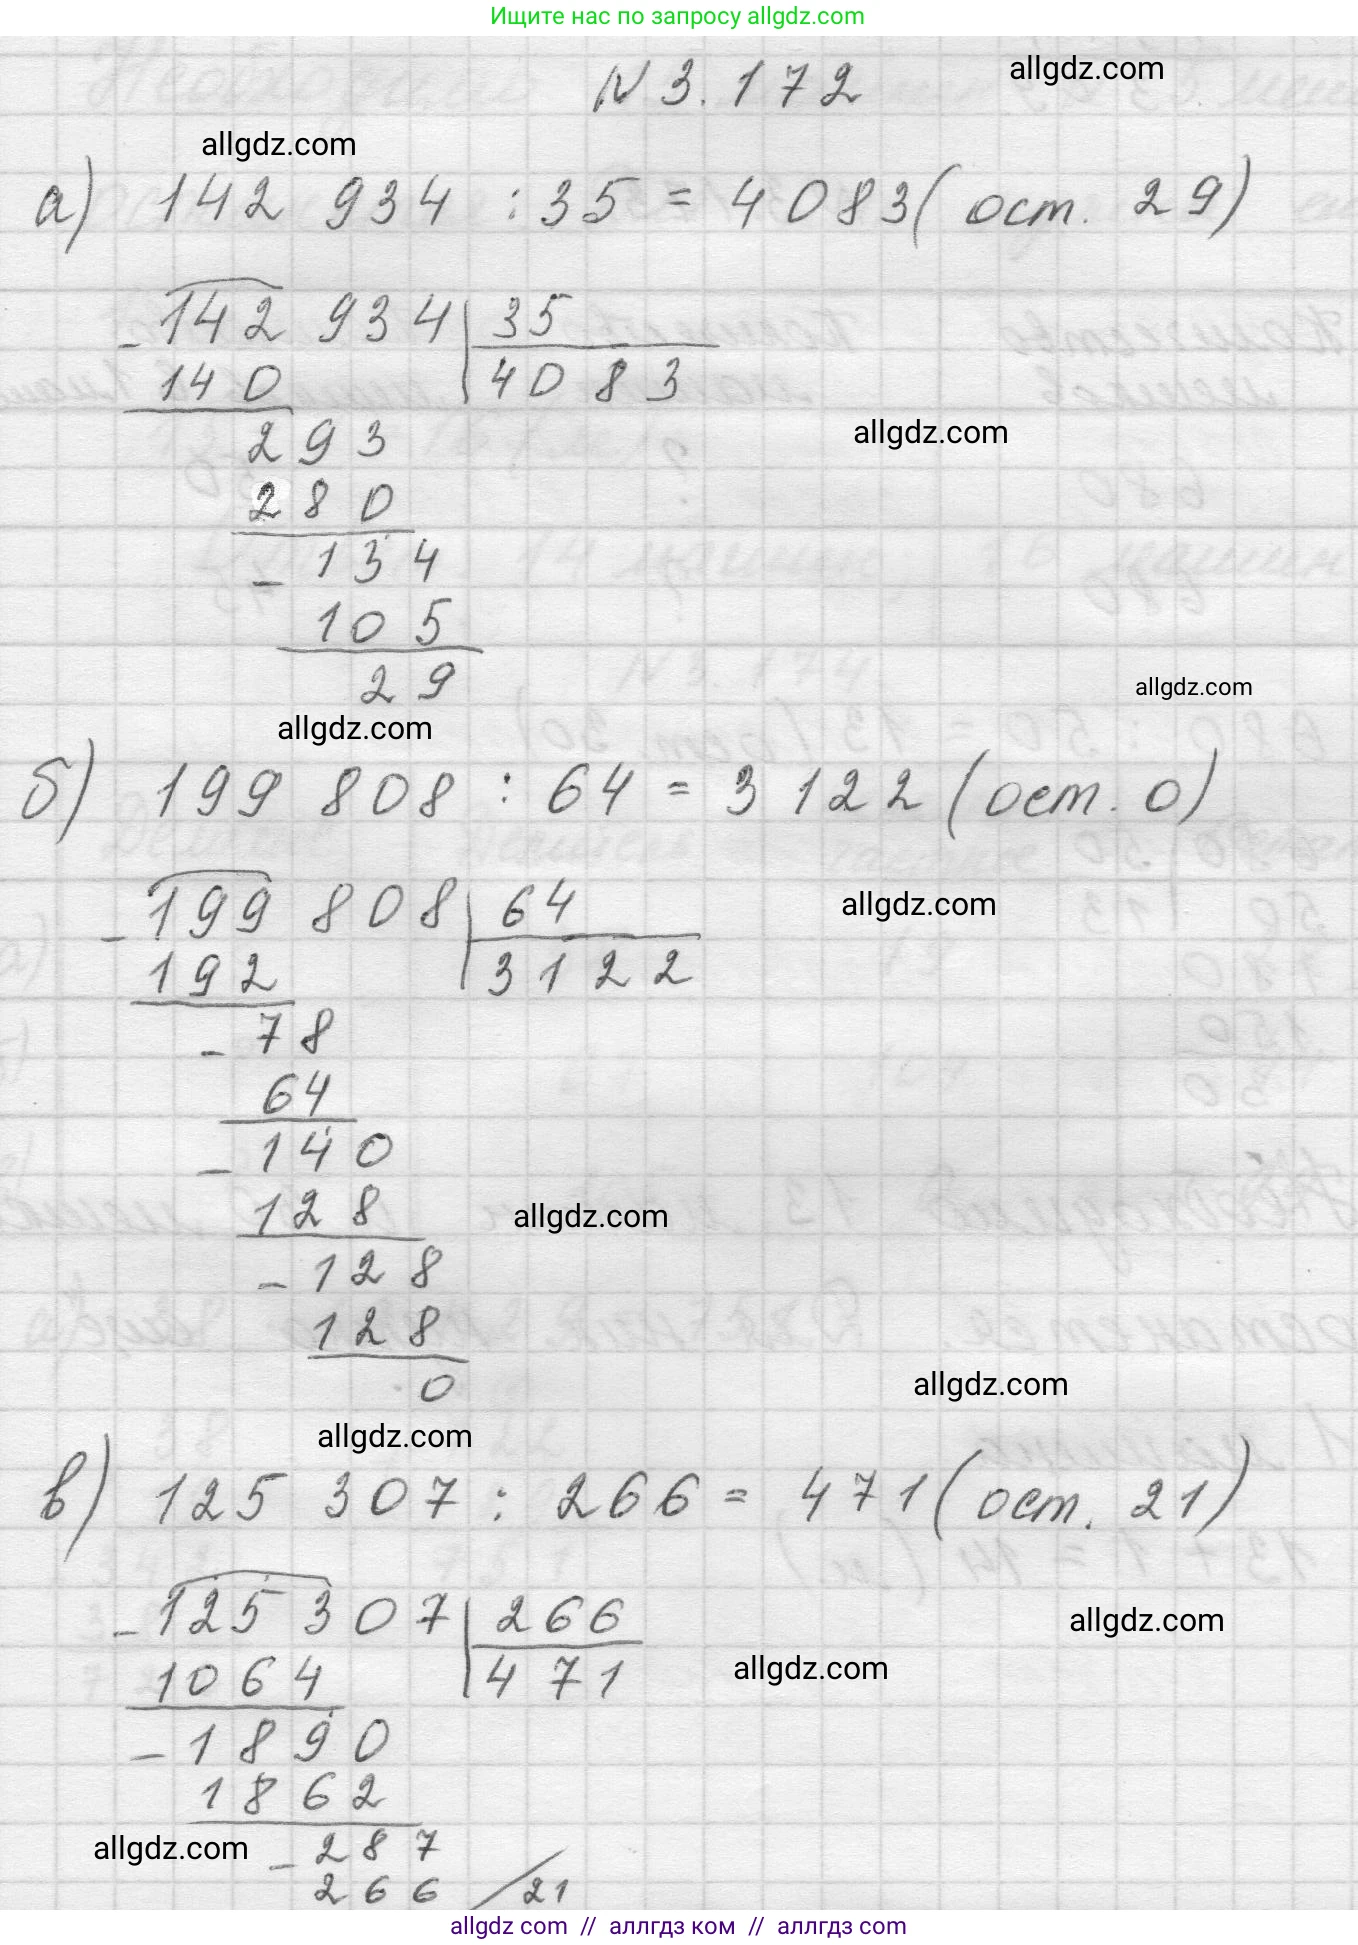 Ищите нас по запросу allgdz.com
N 3.172
allgdz.com
allgdz.com
а) 142 934 : 35 = 4083 (ост. 29)
- 142 934 | 35
140 | 4083
293
allgdz.com
280
- 134
105
29
allgdz.com
allgdz.com
б) 199 808 : 64 = 3122 (ост. 0)
- 199 808 | 64
allgdz.com
192 | 3122
- 78
64
- 140
128
allgdz.com
- 128
128
0
allgdz.com
allgdz.com
в) 125 307 : 266 = 471 (ост. 21)
- 125 307 | 266
allgdz.com
1064 | 471
allgdz.com
- 1890
1862
allgdz.com
- 287
266 / 21
allgdz com // аллгдз ком // аллгдз com